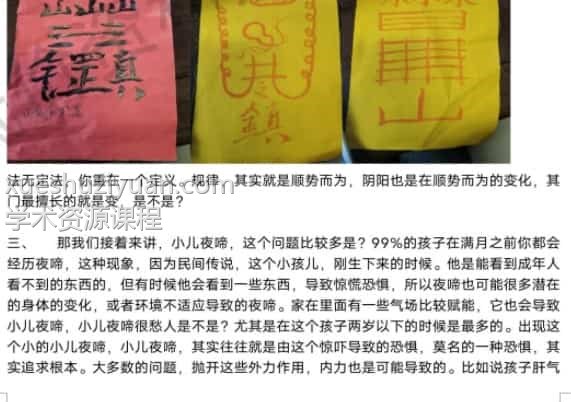 鎮
山
法无定法，你重在一个定义，规律，其实就是顺势而为，阴阳也是在顺势而为的变化，其
门最擅长的就是变，是不是？
xueshuziyuan.com
学术资源课程
三、 那我们接着来讲，小儿夜啼，这个问题比较多是？99%的孩子在满月之前你都会
经历夜啼，这种现象，因为民间传说，这个小孩儿，刚生下来的时候。他是能看到成年人
看不到的东西的，但有时候他会看到一些东西，导致惊慌恐惧，所以夜啼也可能很多潜在
的身体的变化，或者环境不适应导致的夜啼。家在里面有一些气场比较赋能，它也会导致
小儿夜啼，小儿夜啼很愁人是不是？尤其是在这个孩子两岁以下的时候是最多的。出现这
个小的小儿夜啼，小儿夜啼，其实往往就是由这个惊吓导致的恐惧，莫名的一种恐惧，其
实追求根本。大多数的问题，抛开这些外力作用，内力也是可能导致的。比如说孩子肝气